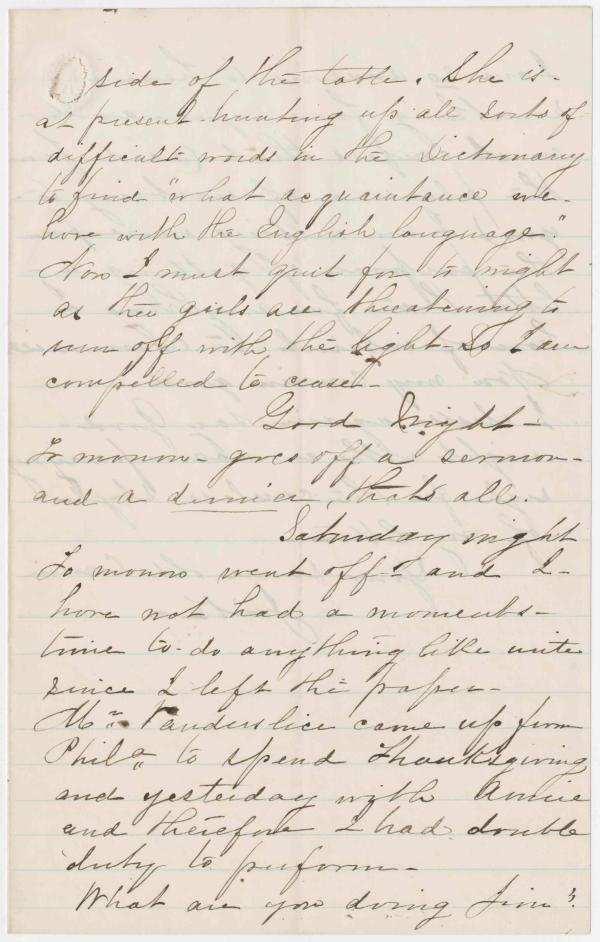 side of the table. She is -
at present hunting up all sorts of
difficult words in the Dictionary
to find "what acquaintance we -
have with the English language".
Now I must quit for to night
as the girls are threatening to
run off with the light - So I am
compelled to cease -
Good Night -
To morrow - goes off a sermon -
and a dinner, thats all.
Saturday night
To morrow went off - and I -
have not had a moments -
time to do anything like write
since I left the paper -
Mr. Vanderslice came up from
Phila. to spend Thanksgiving
and yesterday with Annie
and therefore I had double
duty to preform -
What are you doing Jim?